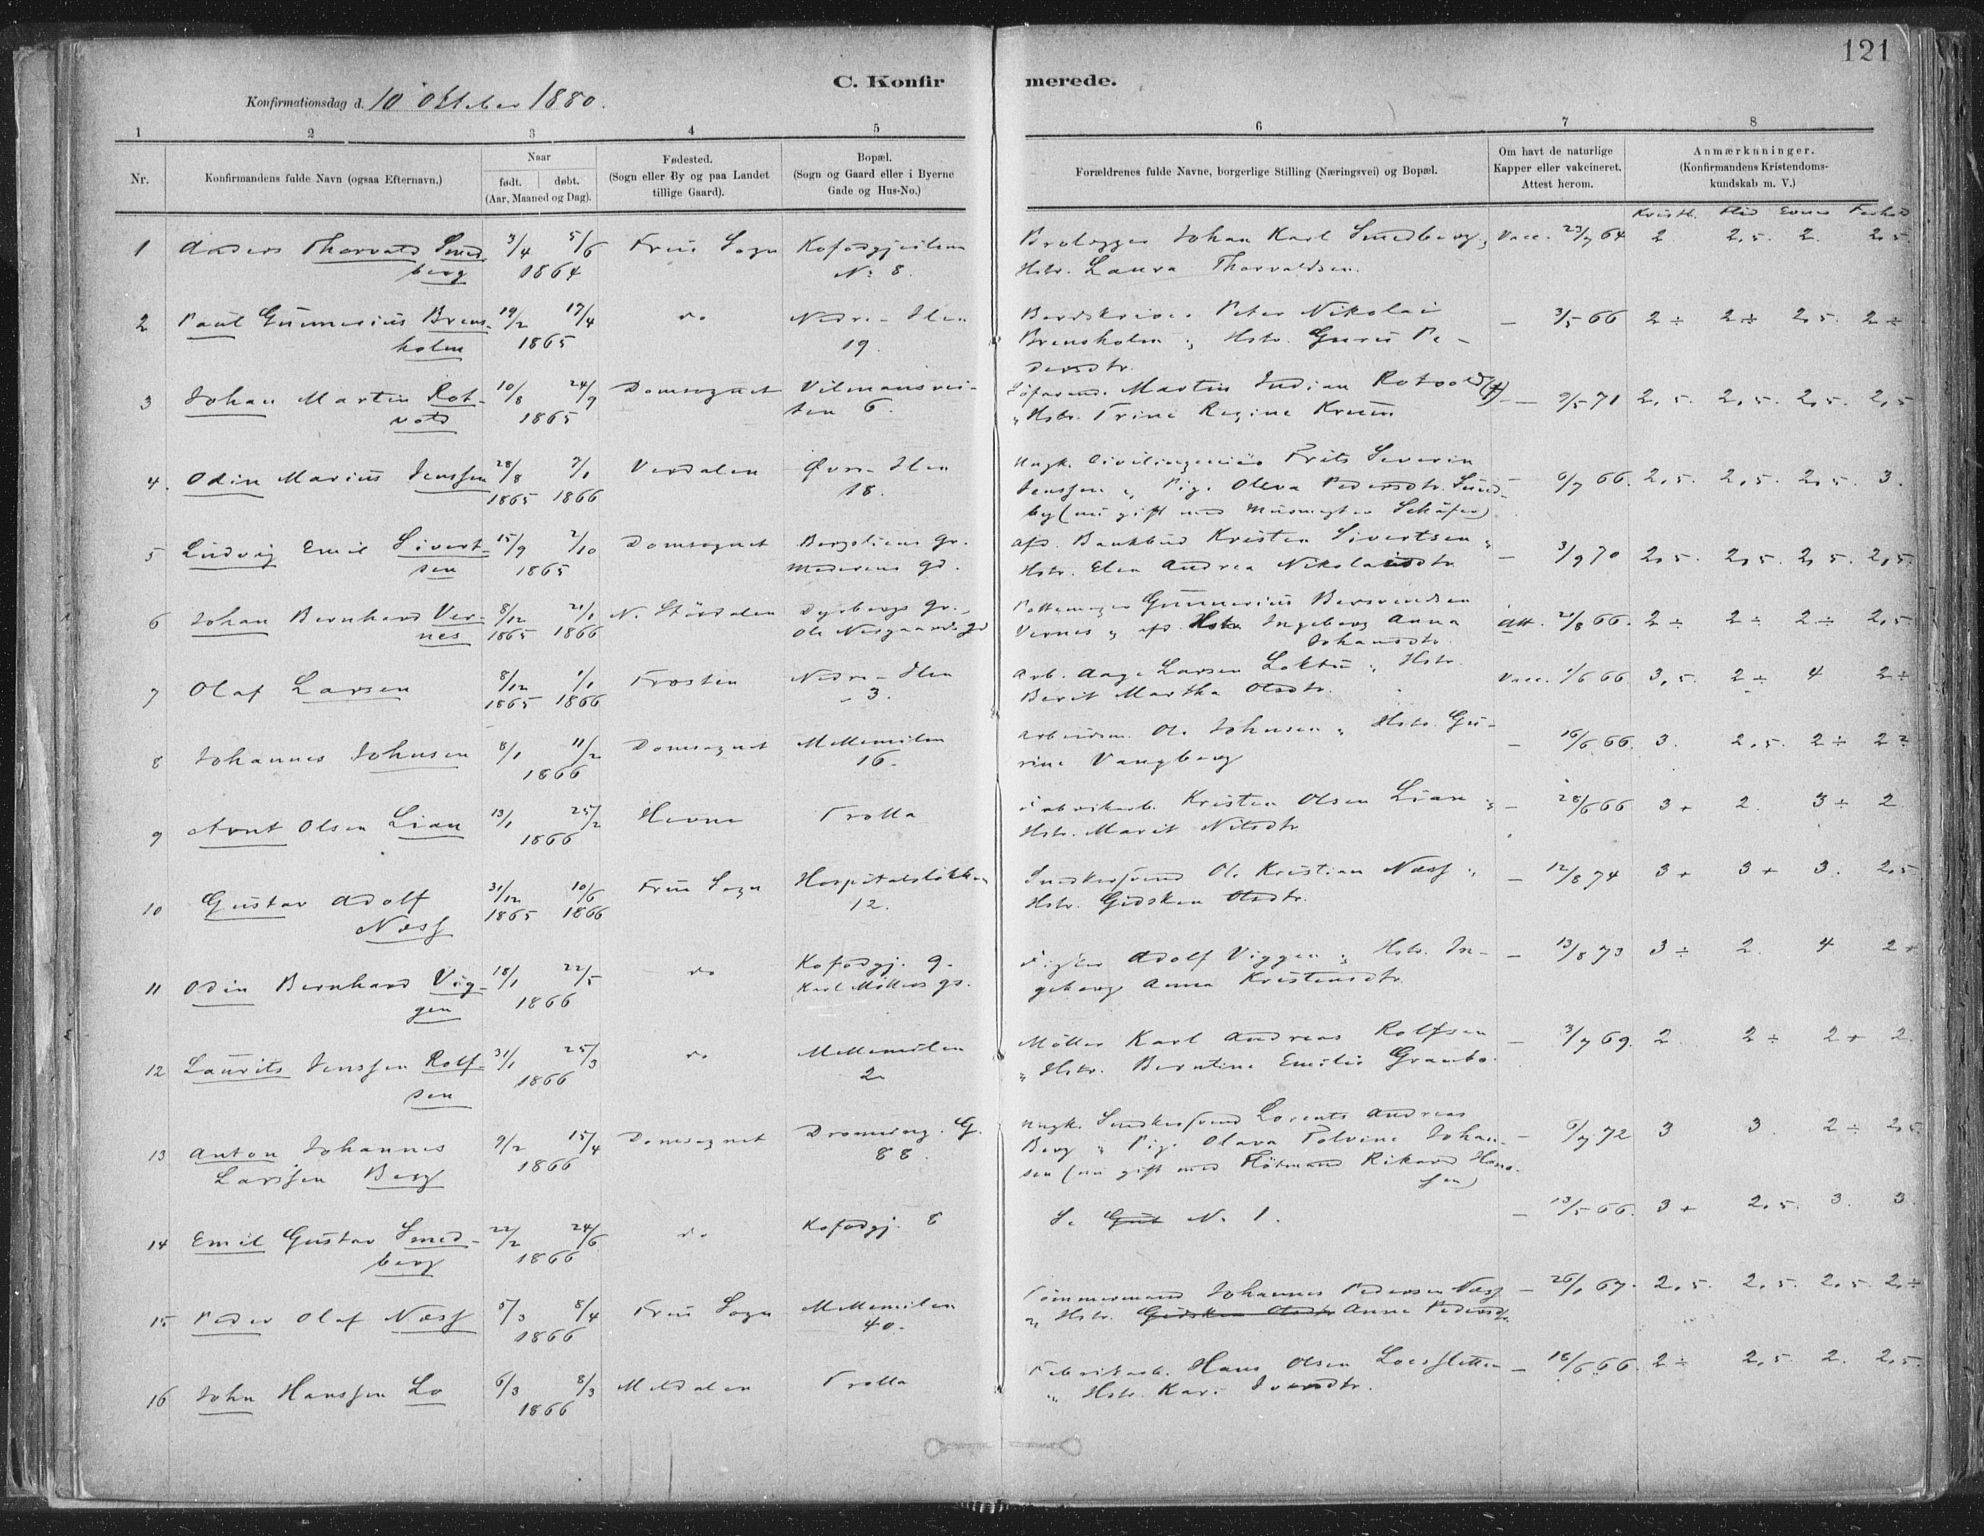 121
C. Konfirmerede.
Konfirmationsdag d. 10 Oktober 1880.
1 2 3 4 5 6 7 8
Nr. Konfirmandens fulde Navn (ogsaa Efternavn.) Naar født. døbt. (Aar, Maaned og Dag). Fødested. (Sogn eller By og paa Landet tillige Gaard). Bopæl. (Sogn og Gaard eller i Byerne Gade og Hus-No.) Forældrenes fulde Navne, borgerlige Stilling (Næringsvei) og Bopæl. Om havt de naturlige Kapper eller vakcineret. Attest herom. Anmærkninger. (Konfirmandens Kristendomskundskab m. V.)
Kristk. Flid Evner Forhold
1 Anders Thorvald Smed- 3/4 5/6 Frue Sogn Kofodgjeilen Brolægger Johan Karl Smedberg, Vacc. 23/7 64 2. 2,5. 2. 2,5
berg 1864 No 8. Hstr. Laura Thorvaldsen.
2 Paul Gunnerius Brens- 19/2 17/4 do Nedre-Ilen Peter Nikolai — 3/5 66 2÷ 2÷ 2,5. 2÷
holm 1865 19. Brensholm Hstr. Guru Pe-
dersdtr.
3 Johan Martin Rot- 10/8 24/9 Domsognet Vilmansvei- Martin Indian Rotvold (†) — 9/5 71 2,5. 2,5. 2,5. 2,5
vold 1865 ten 6. Hstr. Trine Regine Kruum
4. Odin Marius Jenssen 28/8 7/1 Verdalen Øvre-Ilen Ungk. Civilingeniør Frits Severin — 6/7 66. 2,5. 2,5. 2,5. 3.
1865 1866 18. Jenssen Pige Oleva Pedersdtr. Smed-
by (nu gift med Schäfer)
5 Ludvig Emil Sivert- 15/9 2/10 Domsognet gr. afd. Bankbud Kristen Sivertsen — 3/9 70 2,5. 2,5. 2,5. 2,5.
sen 1865 gd. Hstr. Elen Andrea Nikolaisdtr
6 Johan Bernhard Ver- 8/12 21/1 N. Stördalen Dyrborgs gr., Pottemager Gunnerius Bersvendsen Att. 21/8 66. 2÷ 2÷ 2÷ 2,5
nes 1865 1866 Ole Nesgaards gd Vernes afd. Hstr. Ingeborg Anna
Johansdtr.
7 Olaf Larsen 8/12 1/1 Frosten Nedre-Ilen Arb. Aage Larsen Loktu Hstr. Vacc. 1/6 66 3,5. 2÷ 4 2÷
1865 1866 3. Berit Martha Olsdtr.
8 Johannes Johnsen 8/1 11/2 Domsognet Mellemilen Arbeidsm. Ole Johnsen Hstr. Gu- — 16/6 66. 3. 2,5. 2÷ 2÷
1866 16. rine Vangberg
9 Arnt Olsen Lian 13/1 25/2 Hevne Trolla Fabrikarb. Kristen Olsen Lian — 28/6 66 3+ 2. 3÷ 2
1866 Hstr. Marit Nilsdtr.
10 Gustav Adolf 31/12 10/6 Frue Sogn Hospitalsløkken Snedkersvend Ole Kristian Næss — 12/8 74 3+ 3+ 3. 2,5
Næss 1865 1866 12. Hstr. Gidsken Olsdtr.
11 Odin Bernhard Vig- 18/1 22/5 do Kofodgj. 9. Adolf Viggen Hstr. In- — 13/8 73 3÷ 2. 4 2+
gen 1866 Karl Møllers gd. geborg Anna Kristensdtr.
12 Laurits Jenssen Rolf- 31/1 25/3 do Mellemilen Møller Karl Andreas Rolfsen — 3/7 69. 2. 2÷ 2+ 2.
sen 1866 2 Hstr. Berntine Emilie Granbo.
13 Anton Johannes 9/2 15/4 Domsognet Dronning. G. Ungk. Snedkersvend Lorents Andreas — 6/7 72 3 3. 2÷ 2,5.
Larssen Berg 1866 88. Berg Pige Olava Tolvine Johan-
sen (nu gift med Flötmand Rikard Hans-
sen)
14 Emil Gustav Smed- 22/2 24/6 do Kofodgj. 8 S. Gut No 1. — 13/5 66. 3+ 2,5. 3. 3.
berg 1866
15 Peder Olaf Næss 5/3 8/4 Frue Sogn Mellemilen Tømmermand Johannes Pedersen Næss — 26/1 67. 2,5. 2,5. 2,5. 2÷
1866 40. Hstr. Gidsken Olsdtr Anne Pedersdtr.
16 John Hanssen Lo 6/3 8/3 Meldalen Trolla Fabrikarb. Hans Olsen Loessletten — 18/6 66. 2÷ 2,5. 2. 2,5.
1866 Hstr. Kari Iversdtr.